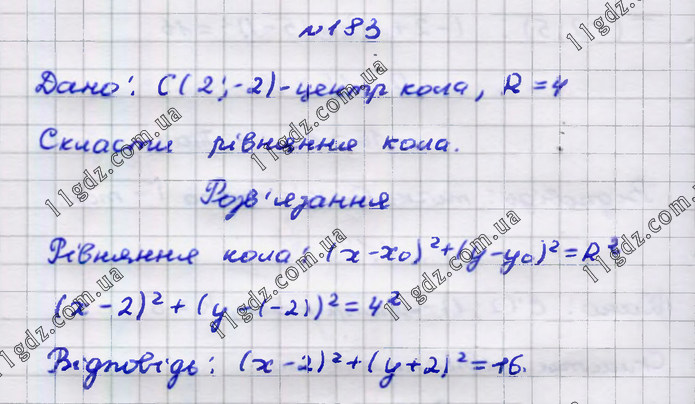 №183
Дано: C(2;-2)-центр кола, R=4
Скласти рівняння кола.
Розв'язання
Рівняння кола: (x-x₀)²+(y-y₀)²=R²
(x-2)²+(y-(-2))²=4²
Відповідь: (x-2)²+(y+2)²=16.
11gdz.com.ua
11gdz.com.ua
11gdz.com.ua
11gdz.com.ua
11gdz.com.ua
11gdz.com.ua
11gdz.com.ua
11gdz.com.ua